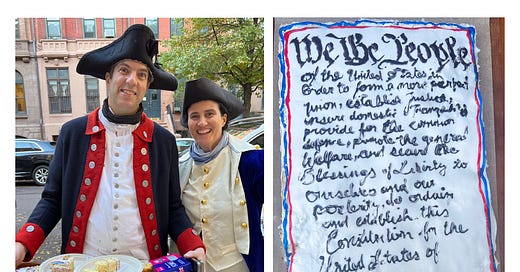 We The People
of the United States in
order to form a more perfect
union establish justice,
insure domestic Tranquility
provide for the common
defense, promote the general
Welfare, and secure the
Blessings of Liberty to
ourselves and our
posterity, do ordain
and establish this
Constitution for the
United States of